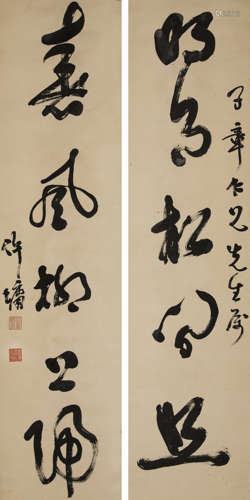 子章仁兄先生属
明月松間照
春風柳上歸
許